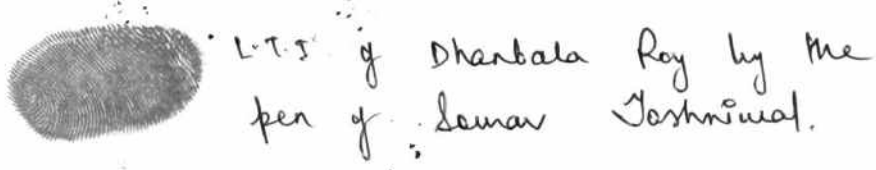 L.T.I of Dhanbala Roy by the
pen of Sourav Toshniwal.